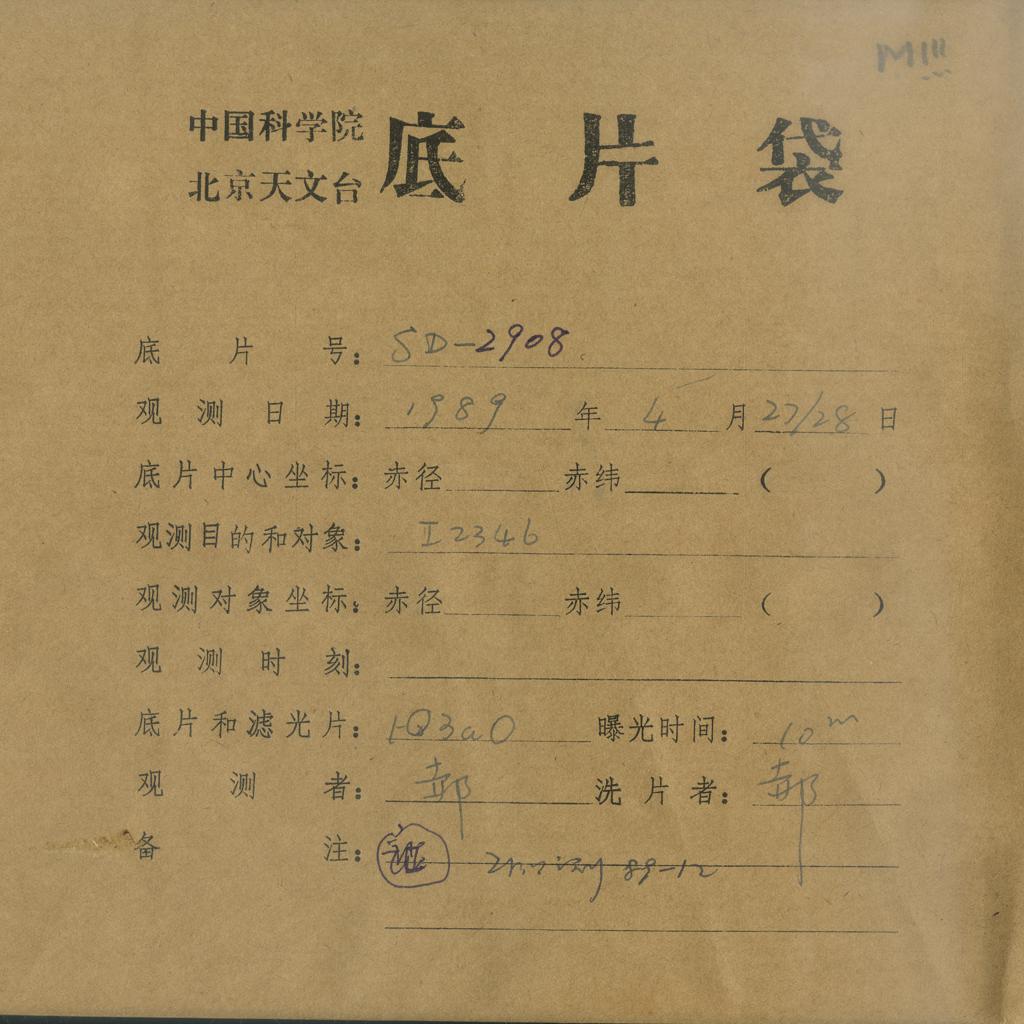 M111
中国科学院
北京天文台
底片袋
底片号： SD-2908
观测日期： 1989 年 4 月 27/28 日
底片中心坐标：赤径 赤纬 （ ）
观测目的和对象： I2346
观测对象坐标：赤径 赤纬 （ ）
观测时刻：
底片和滤光片： 103aO 曝光时间： 10m
观测者： 郝 洗片者： 郝
备注： 89-12